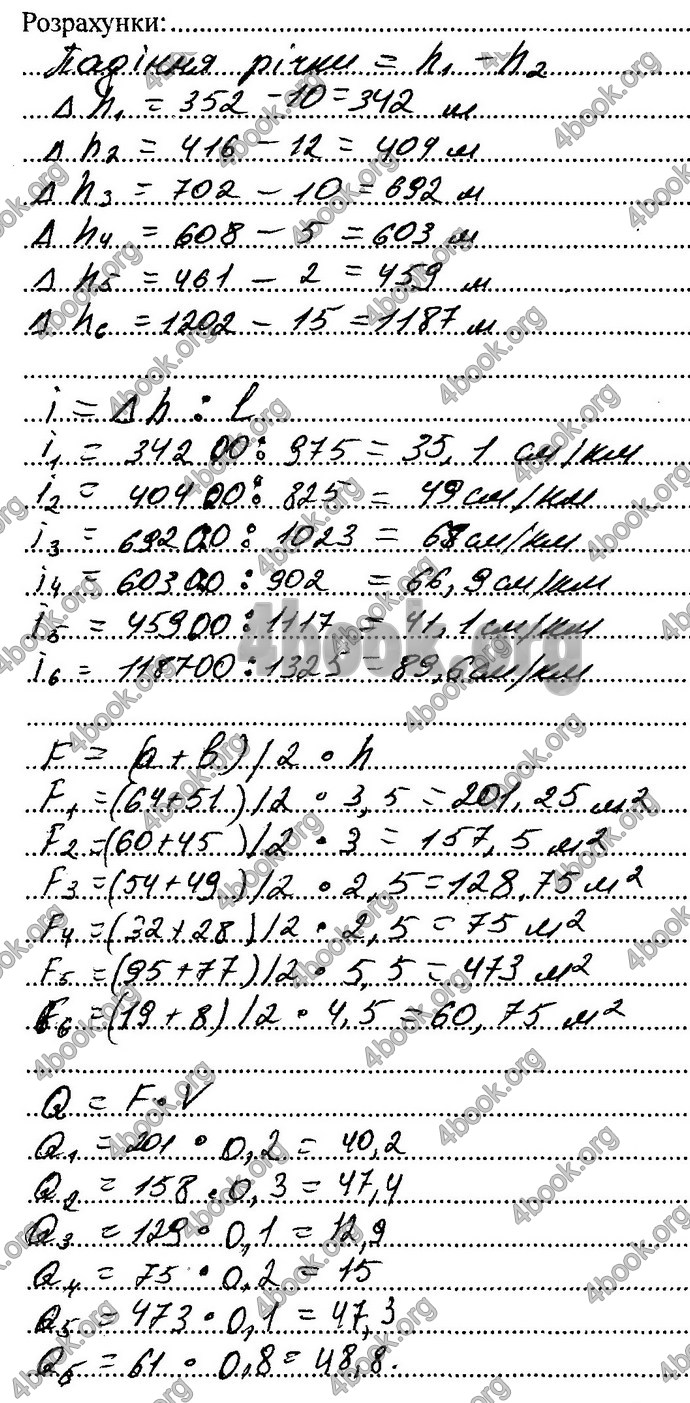 Розрахунки:
Падіння річки = h₁ - h₂
Δ h₁ = 352 - 10 = 342 м
Δ h₂ = 416 - 12 = 404 м
Δ h₃ = 702 - 10 = 692 м
Δ h₄ = 608 - 5 = 603 м
Δ h₅ = 461 - 2 = 459 м
Δ h₆ = 1202 - 15 = 1187 м
i = Δ h : L
i₁ = 34200 : 975 = 35,1 см/км
i₂ = 40400 : 825 = 49 см/км
i₃ = 69200 : 1023 = 68 см/км
i₄ = 60300 : 902 = 66,9 см/км
i₅ = 45900 : 1117 = 41,1 см/км
i₆ = 118700 : 1325 = 89,6 см/км
F = (a + b) / 2 · h
F₁ = (64+51) / 2 · 3,5 = 201,25 м²
F₂ = (60+45) / 2 · 3 = 157,5 м²
F₃ = (54+49) / 2 · 2,5 = 128,75 м²
F₄ = (32+28) / 2 · 2,5 = 75 м²
F₅ = (95+77) / 2 · 5,5 = 473 м²
F₆ = (19+8) / 2 · 4,5 = 60,75 м²
Q = F · V
Q₁ = 201 · 0,2 = 40,2
Q₂ = 158 · 0,3 = 47,4
Q₃ = 129 · 0,1 = 12,9
Q₄ = 75 · 0,2 = 15
Q₅ = 473 · 0,1 = 47,3
Q₆ = 61 · 0,8 = 48,8.
4book.org